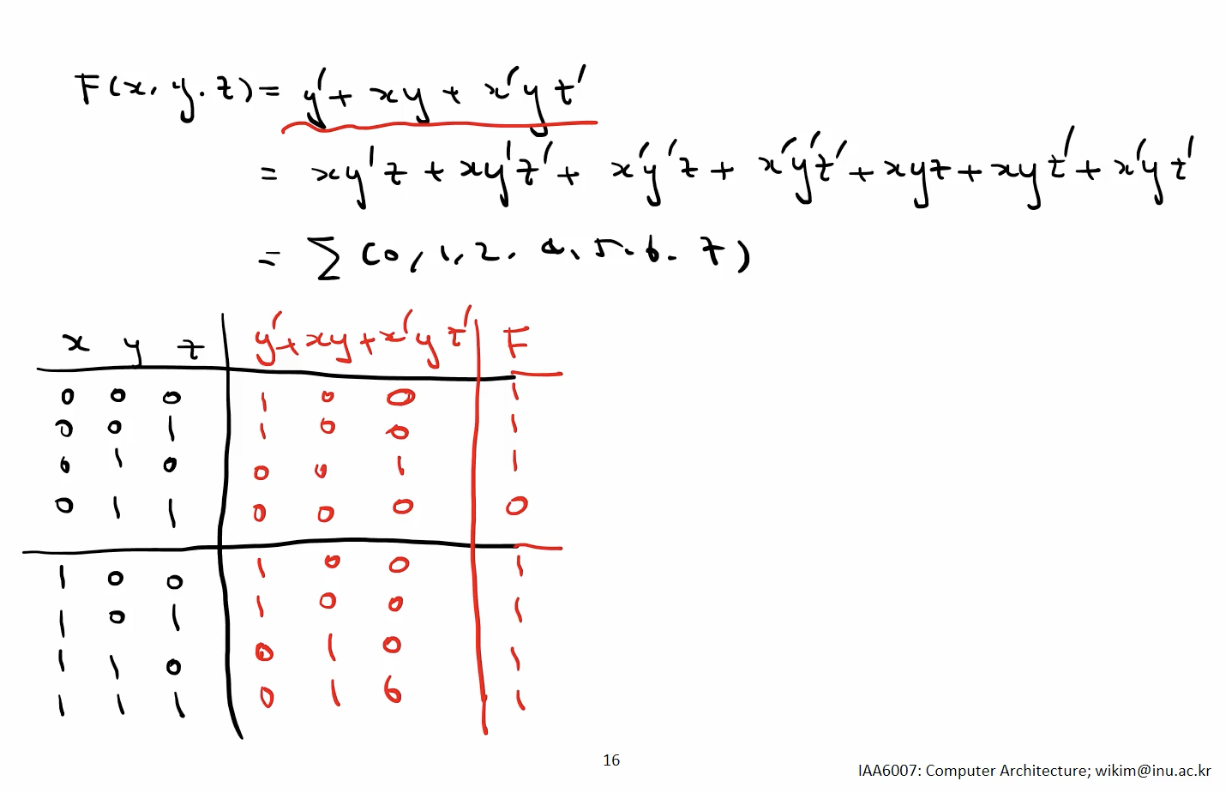 F(x, y, z) = y' + xy + x'yz'
= xy'z + xy'z' + x'y'z + x'y'z' + xyz + xyz' + x'yz'
= ∑ (0, 1, 2, 4, 5, 6, 7)
x y z y' + xy + x'yz' F
0 0 0 1 0 0 1
0 0 1 1 0 0 1
0 1 0 0 0 1 1
0 1 1 0 0 0 0
1 0 0 1 0 0 1
1 0 1 1 0 0 1
1 1 0 0 1 0 1
1 1 1 0 1 0 1
16
IAA6007: Computer Architecture; wikim@inu.ac.kr